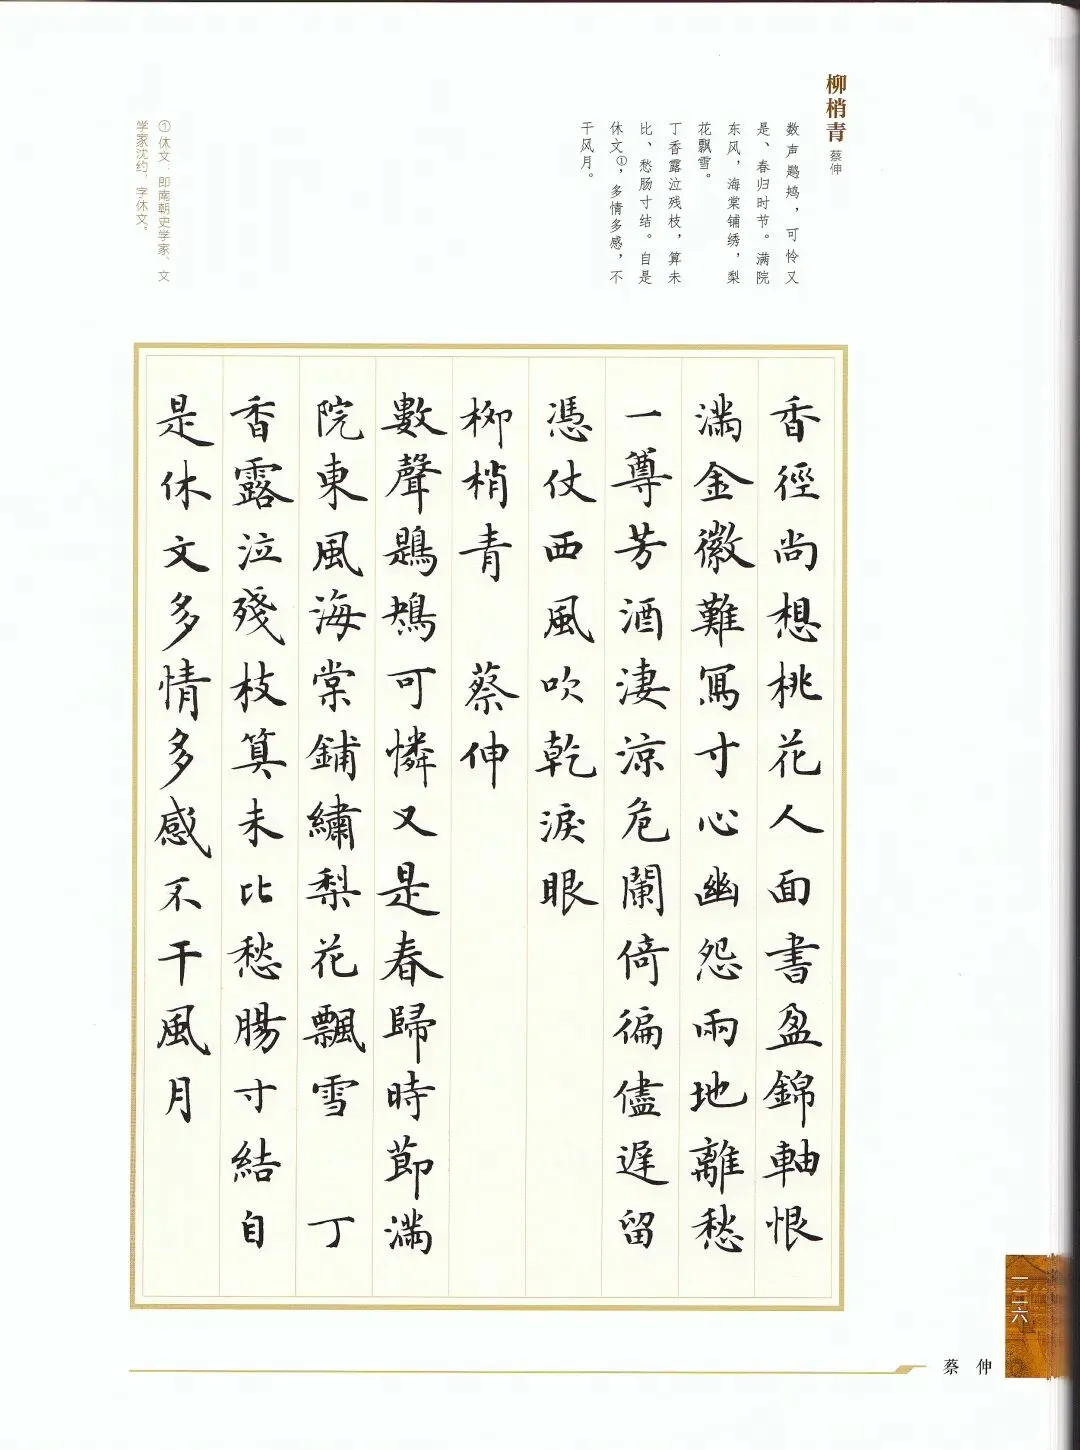 柳梢青 蔡伸
数声鶗鴂，可怜又
是、春归时节。满院
东风，海棠铺绣，梨
花飘雪。
丁香露泣残枝，算未
比、愁肠寸结。自是
休文①，多情多感，不
干风月。
① 休文：即南朝史学家、文
学家沈约，字休文。
香徑尚想桃花人面書盈錦軸恨
滿金徽難寫寸心幽怨兩地離愁
一尊芳酒淒涼危闌倚徧儘遲留
憑仗西風吹乾淚眼
柳梢青 蔡伸
數聲鶗鴂可憐又是春歸時節滿
院東風海棠鋪繡梨花飄雪 丁
香露泣殘枝算未比愁腸寸結自
是休文多情多感不干風月
一二六
蔡 伸